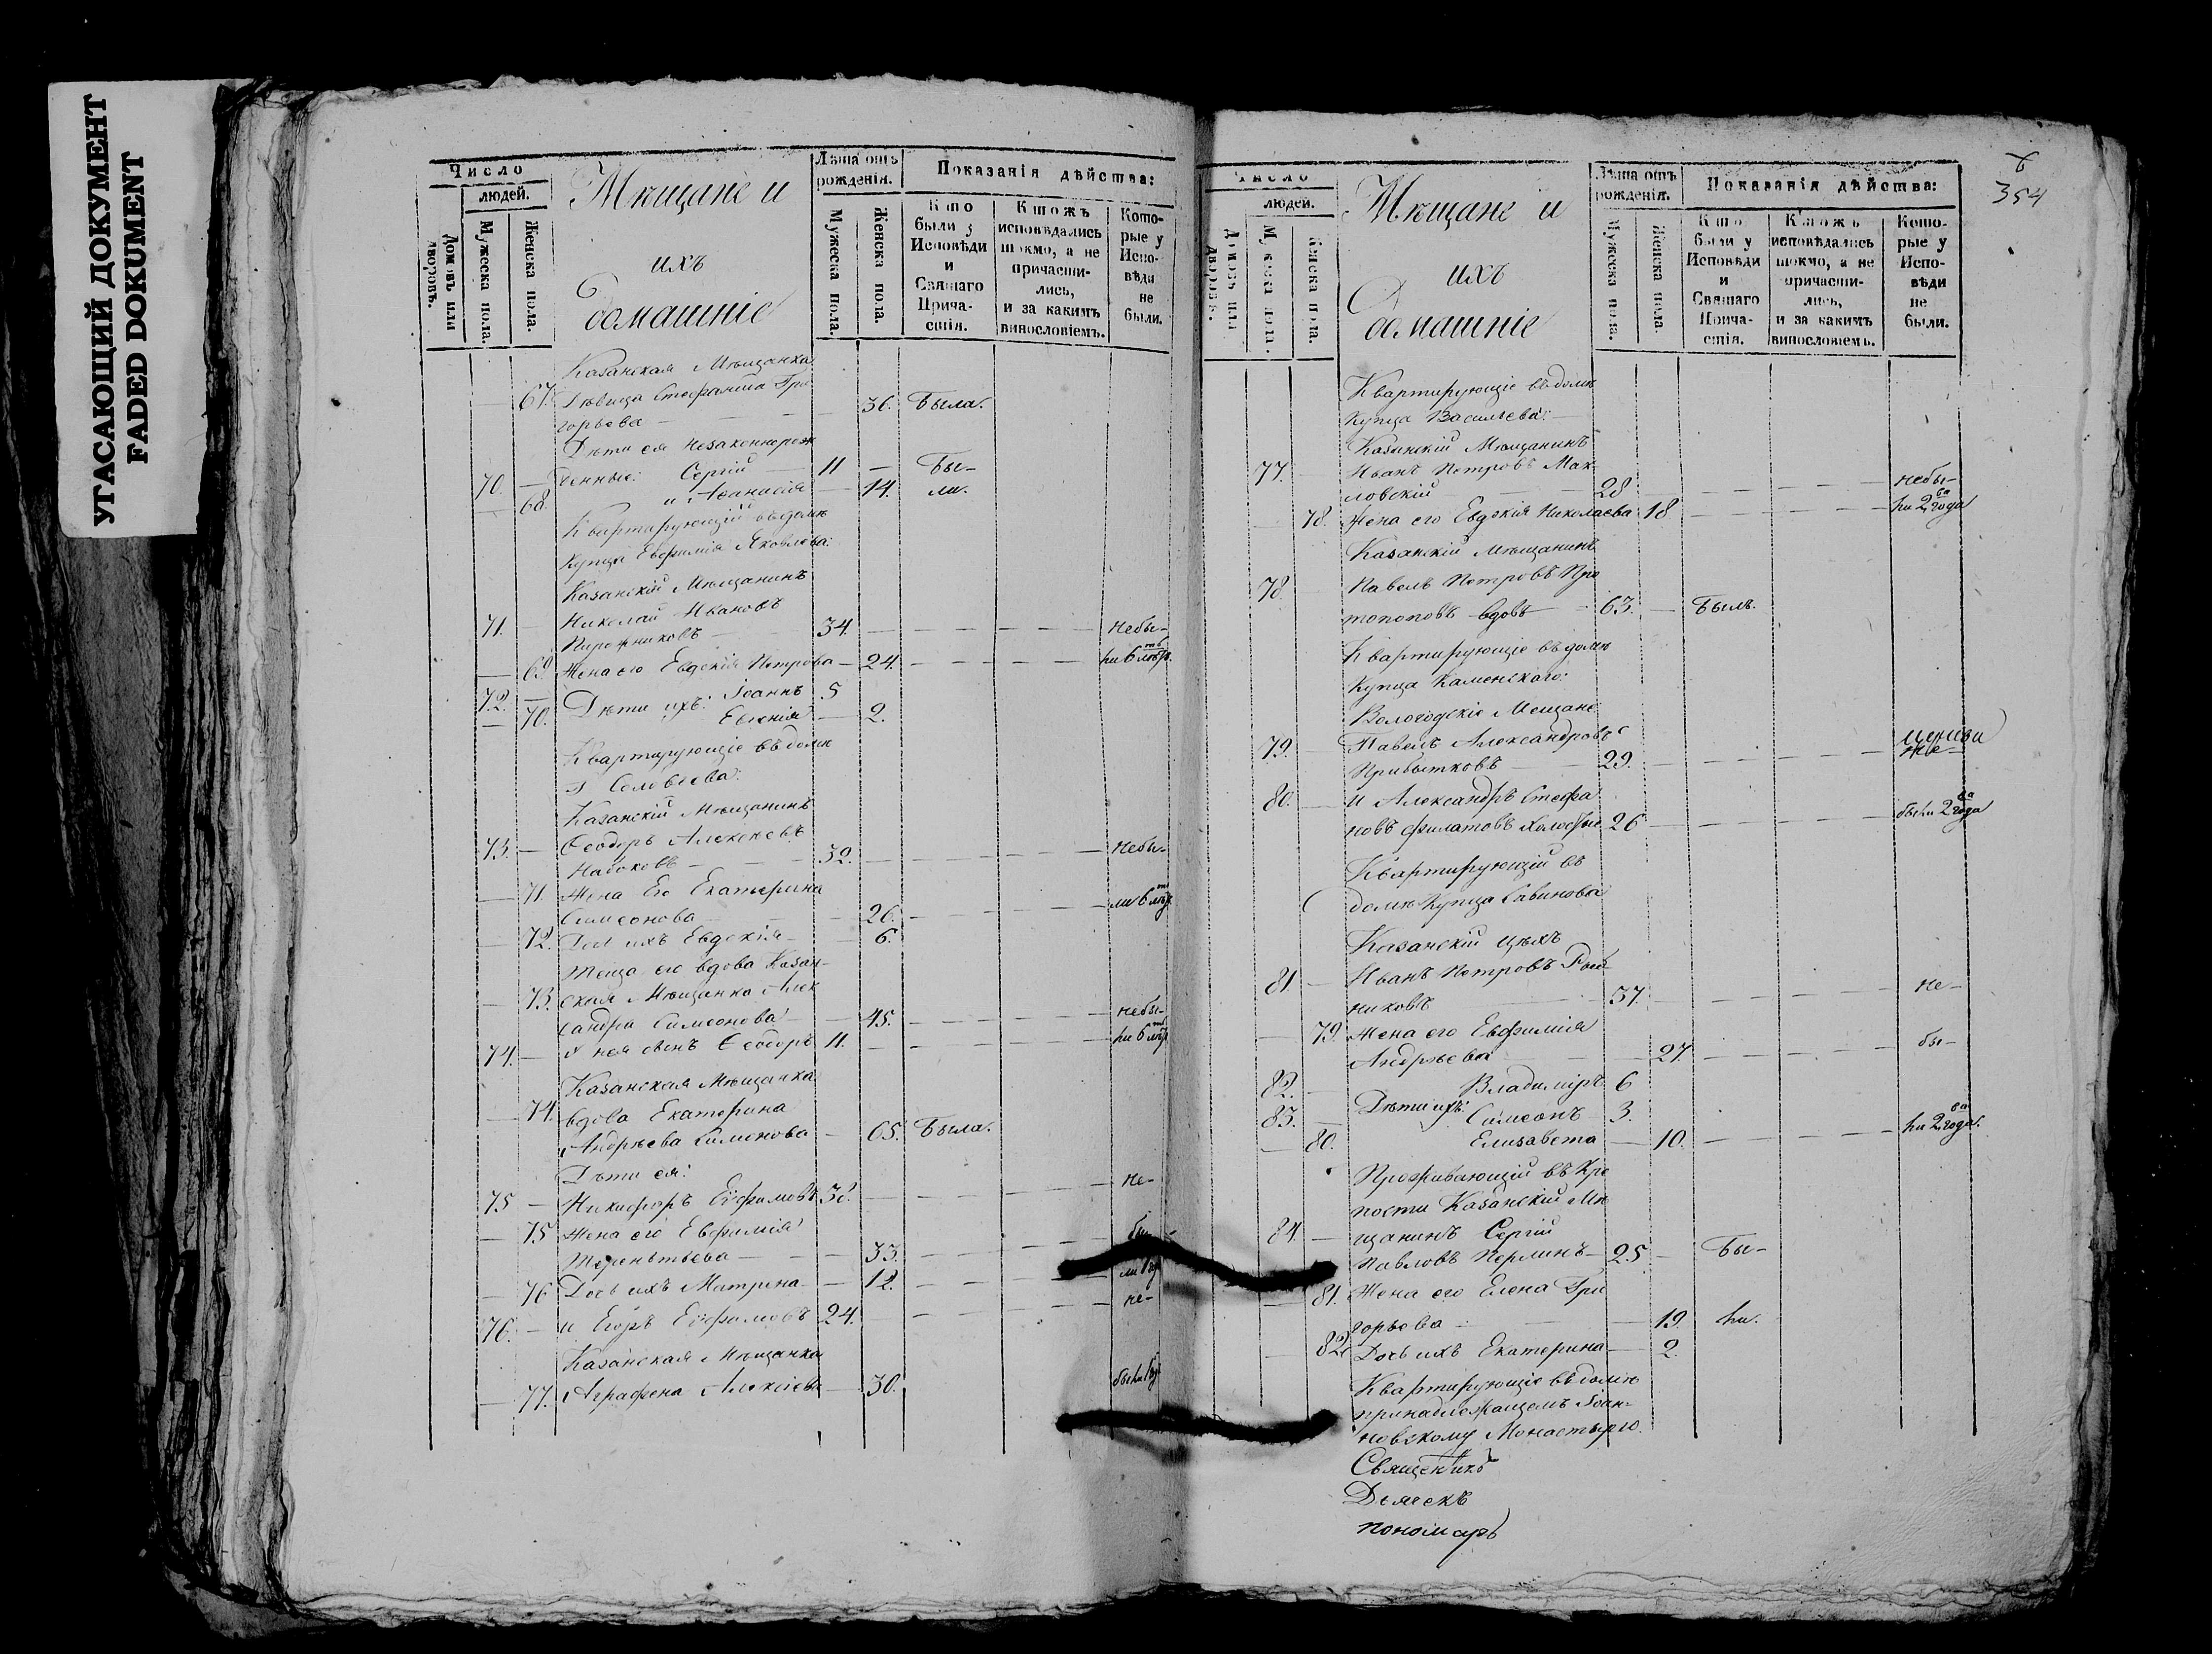 УГАСАЮЩИЙ ДОКУМЕНТ
FADED DOKUMENT
Число
людей.
Домовъ или дворовъ.
Мужеска пола.
Женска пола.
Мѣщане и
ихъ
домашніе
Лѣта отъ рожденія.
Мужеска пола.
Женска пола.
Показанія дѣйства:
Кто были у Исповѣди и Святаго Прича-стія.
Ктожъ исповѣдались токмо, а не причасти-лись, и за какимъ винословіемъ.
Кото-рые у Испо-вѣди не были.
Казанская Мѣщанка
67. Дѣвица Стефанида Гри
горьева — 36. Была.
Дѣти ея незаконнорож
70. — денные: Сергій — 11 — Бы-
— 68. и Аѳанасія — 14. ли.
Квартирующій въ домѣ
Купца Евфимія Яковлева:
Казанскій Мѣщанинъ
71. — Николай Ивановъ
Пирожниковъ — 34. — небы-
— 69 Жена его Евдокія Петрова — 24. — ли 6 лѣтъ
72. — Дѣти ихъ: Іоаннъ 5
— 70. Евгенія — 2.
Квартирующіе въ домѣ
г Соловьева:
Казанскій Мѣщанинъ
73. — Ѳеодоръ Алексѣевъ
Набоковъ — 32. — небы-
— 71. Жена Его Екатерина
Симеонова — 26. — ли 6 лѣтъ
— 72. Дочь ихъ Евдокія — 6.
Теща его вдова Казан-
— 73. ская Мѣщанка Алек
сандра Симеонова — 45. — небы-
74. — У нея сынъ Ѳеодоръ 11. — ли 6 лѣтъ
Казанская Мѣщанка
— 74. вдова Екатерина
Андрѣева Симонова — 65. Была.
Дѣти ея:
75 — Никифоръ Ефимовъ 38. — не-
— 75 Жена его Евфимія
Терентьева — 33. — бы-
— 76 Дочь ихъ Матрена — 12. — ли
76. — и Егоръ Ефимовъ 24. — не-
Казанская Мѣщанка
— 77. Аграфена Алексіева — 30. были
354
Число
людей.
Домовъ или дворовъ.
Мужеска пола.
Женска пола.
Мѣщане и
ихъ
домашніе
Лѣта отъ рожденія.
Мужеска пола.
Женска пола.
Показанія дѣйства:
Кто были у Исповѣди и Святаго Прича-стія.
Ктожъ исповѣдались токмо, а не причасти-лись, и за какимъ винословіемъ.
Кото-рые у Испо-вѣди не были.
Квартирующіе въ домѣ
Купца Васильева:
Казанскій Мѣщанинъ
77. — Иванъ Петровъ Мак-
ловскій — 28 — небы-
— 78. Жена его Евдокія Николаева 18 — ли 2 года
Казанскій Мѣщанинъ
78. — Павелъ Петровъ Про
топоповъ вдовъ — 63. — Былъ.
Квартирующіе въ домѣ
Купца Каменскаго:
Вологодскіе Мещане
79. — Павелъ Александровъ
Прибытковъ — 29. — не-
80. — и Александръ Стефа
новъ Филатовъ холостые 26 — были 2 года
Квартирующій въ
домѣ Купца Савинова
Казанскій цѣхъ
81. — Иванъ Петровъ
никовъ — 37. — не-
— 79. Жена его Евфимія
Андрѣева — 27. — бы-
82. — Владиміръ 6
83. — Дѣти ихъ: Симеонъ 3.
— 80. Елизавета — 10. — ли 2 года.
Проживающій въ Кре
пости Казанскій Мѣ
84. — щанинъ Сергій
Павловъ Перлинъ — 25 — Бы-
— 81. Жена его Елена Гри
горьева — 19. ли.
— 82 Дочь ихъ Екатерина — 2.
Квартирующіе въ домѣ
принадлежащемъ Іоан-
новскому Монастырю.
Священникъ
Дьячекъ
пономарь